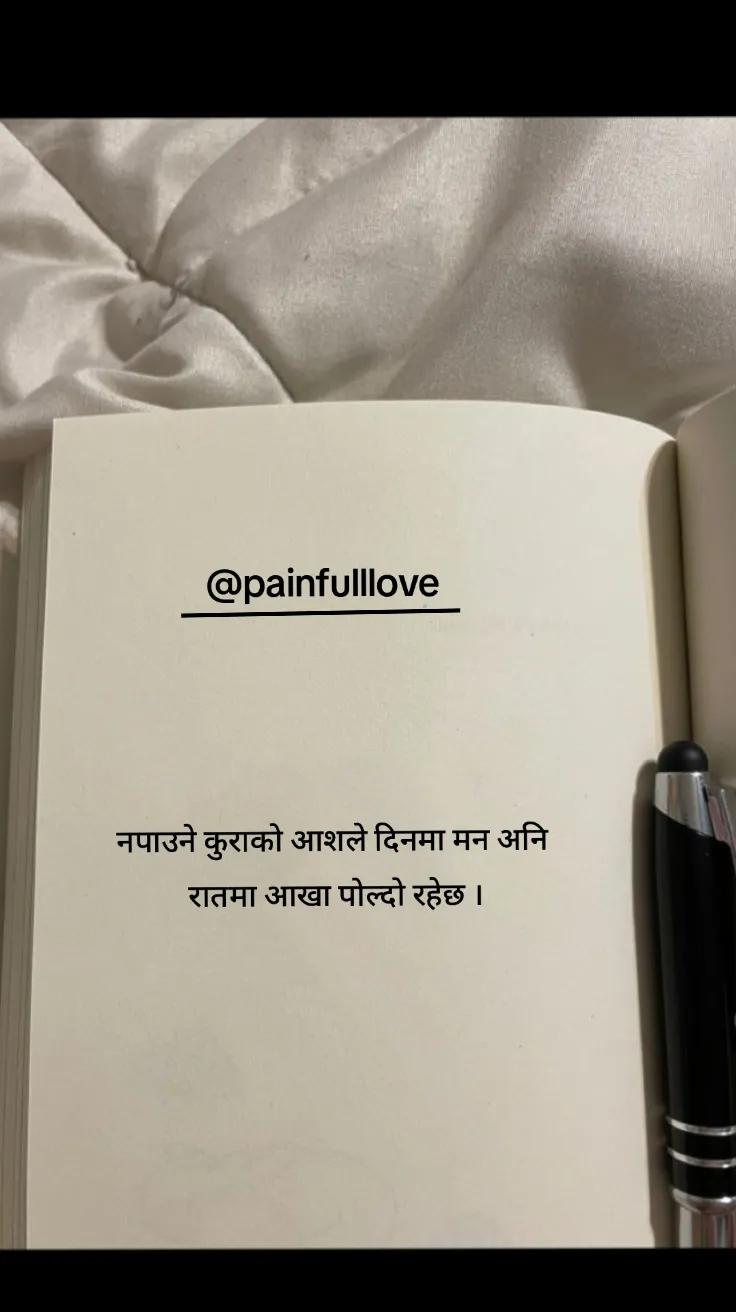 @painfulllove
नपाउने कुराको आशले दिनमा मन अनि
रातमा आखा पोल्दो रहेछ ।